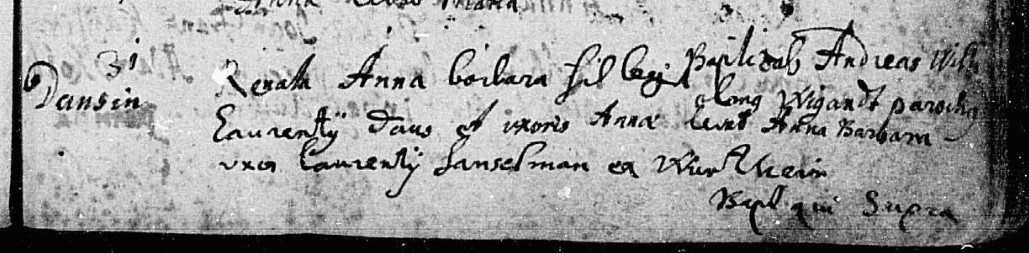 Anna
31 Renata Anna barbara fil legi Baptizab Andreas Wilh
Dansin
elmg Wigandt parochg
Laurentÿ Daus et uxoris Annæ levnt Anna Barbara
uxor Laurentÿ Hanselman ex Würtheim
Bapt qui Supra